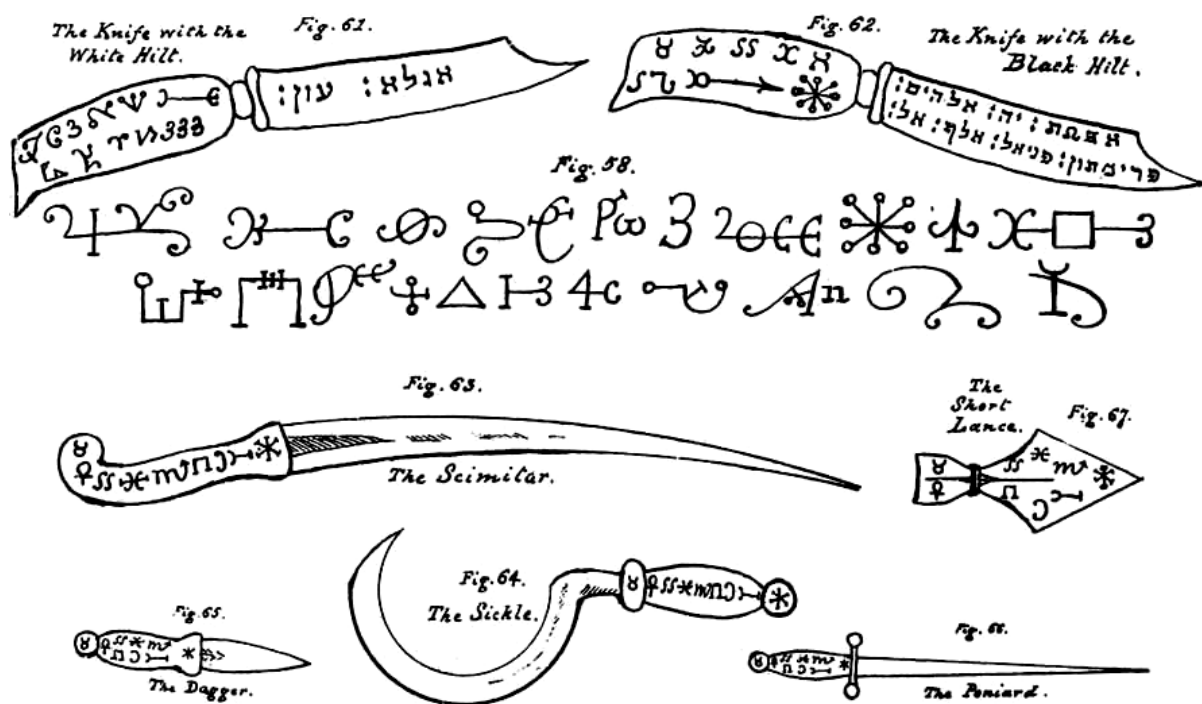 The Knife with the
White Hilt.
Fig. 61.
אגלא: עון:
Fig. 62.
The Knife with the
Black Hilt.
יה: אלהים:
אל:
Fig. 58.
Fig. 63.
The Scimitar.
The
Short
Lance.
Fig. 67.
Fig. 64.
The Sickle.
Fig. 65.
The Dagger.
Fig. 66.
The Poniard.